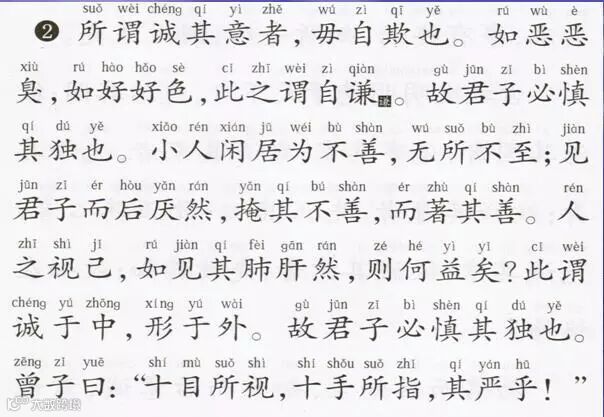 suǒ wèi chéng qí yì zhě wú zì qī yě rú wù è
❷ 所谓诚其意者，毋自欺也。如恶恶
xiù rú hào hǎo sè cǐ zhī wèi zì qiàn gù jūn zǐ bì shèn
臭，如好好色，此之谓自谦。故君子必慎
qí dú yě xiǎo rén xián jū wéi bù shàn wú suǒ bù zhì jiàn
其独也。小人闲居为不善，无所不至；见
jūn zǐ ér hòu yǎn rán yǎn qí bú shàn ér zhù qí shàn rén
君子而后厌然，掩其不善，而著其善。人
zhī shì jǐ rú jiàn qí fèi gān rán zé hé yì yǐ cǐ wèi
之视己，如见其肺肝然，则何益矣？此谓
chéng yú zhōng xíng yú wài gù jūn zǐ bì shèn qí dú yě
诚于中，形于外。故君子必慎其独也。
zēng zǐ yuē shí mù suǒ shì shí shǒu suǒ zhǐ qí yán hū
曾子曰：“十目所视，十手所指，其严乎！”
大数跨境